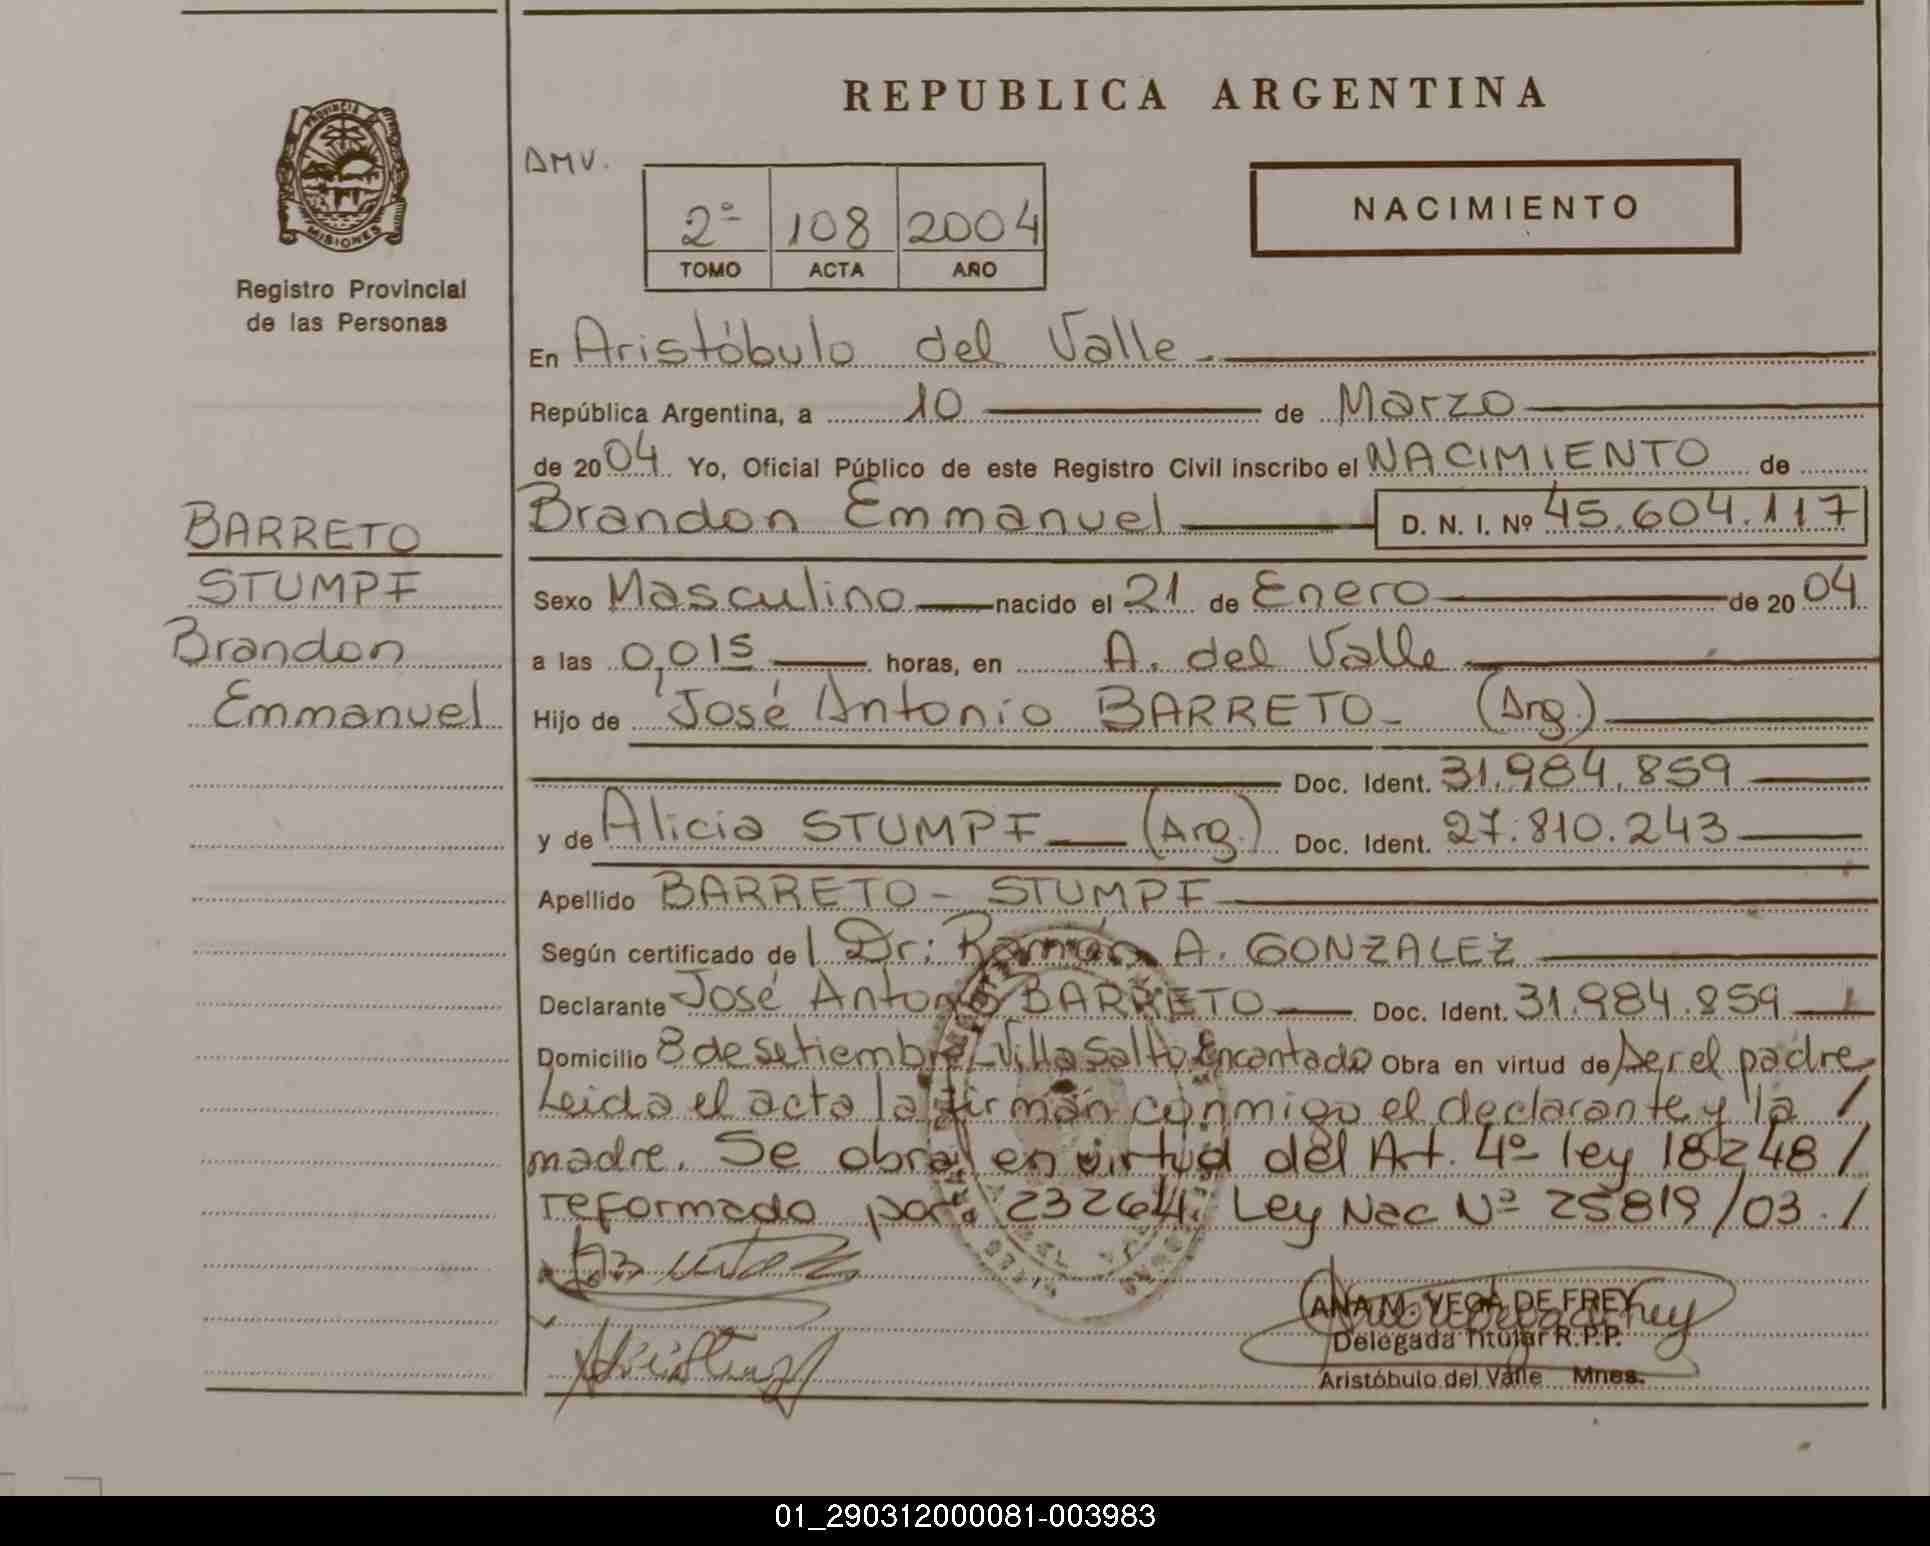 REPUBLICA ARGENTINA
PROVINCIA
MISIONES
Registro Provincial
de las Personas
DMV.
2º 108 2004
TOMO ACTA AÑO
NACIMIENTO
En Aristóbulo del Valle
República Argentina, a 10 de Marzo
de 2004 Yo, Oficial Público de este Registro Civil inscribo el NACIMIENTO de
Brandon Emmanuel D. N. I. Nº 45.604.117
BARRETO
STUMPF
Brandon
Emmanuel
Sexo Masculino nacido el 21 de Enero de 2004
a las 0,015 horas, en A. del Valle
Hijo de José Antonio BARRETO - (Arg.)
Doc. Ident. 31.984.859
y de Alicia STUMPF (Arg.) Doc. Ident. 27.810.243
Apellido BARRETO - STUMPF
Según certificado de l Dr: Ramón A. GONZALEZ
Declarante José Antonio BARRETO Doc. Ident. 31.984.859
Domicilio 8 de setiembre - Villa Salto Encantado Obra en virtud de ser el padre
Leida el acta la firman conmigo el declarante y la /
madre. Se obra en virtud del Art. 4º ley 18248 /
reformado por 23264. Ley Nac Nº 25819/03. /
ANA M. VEGA DE FREY
Delegada Titular R.P.P.
Aristóbulo del Valle Mnes.
01_290312000081-003983